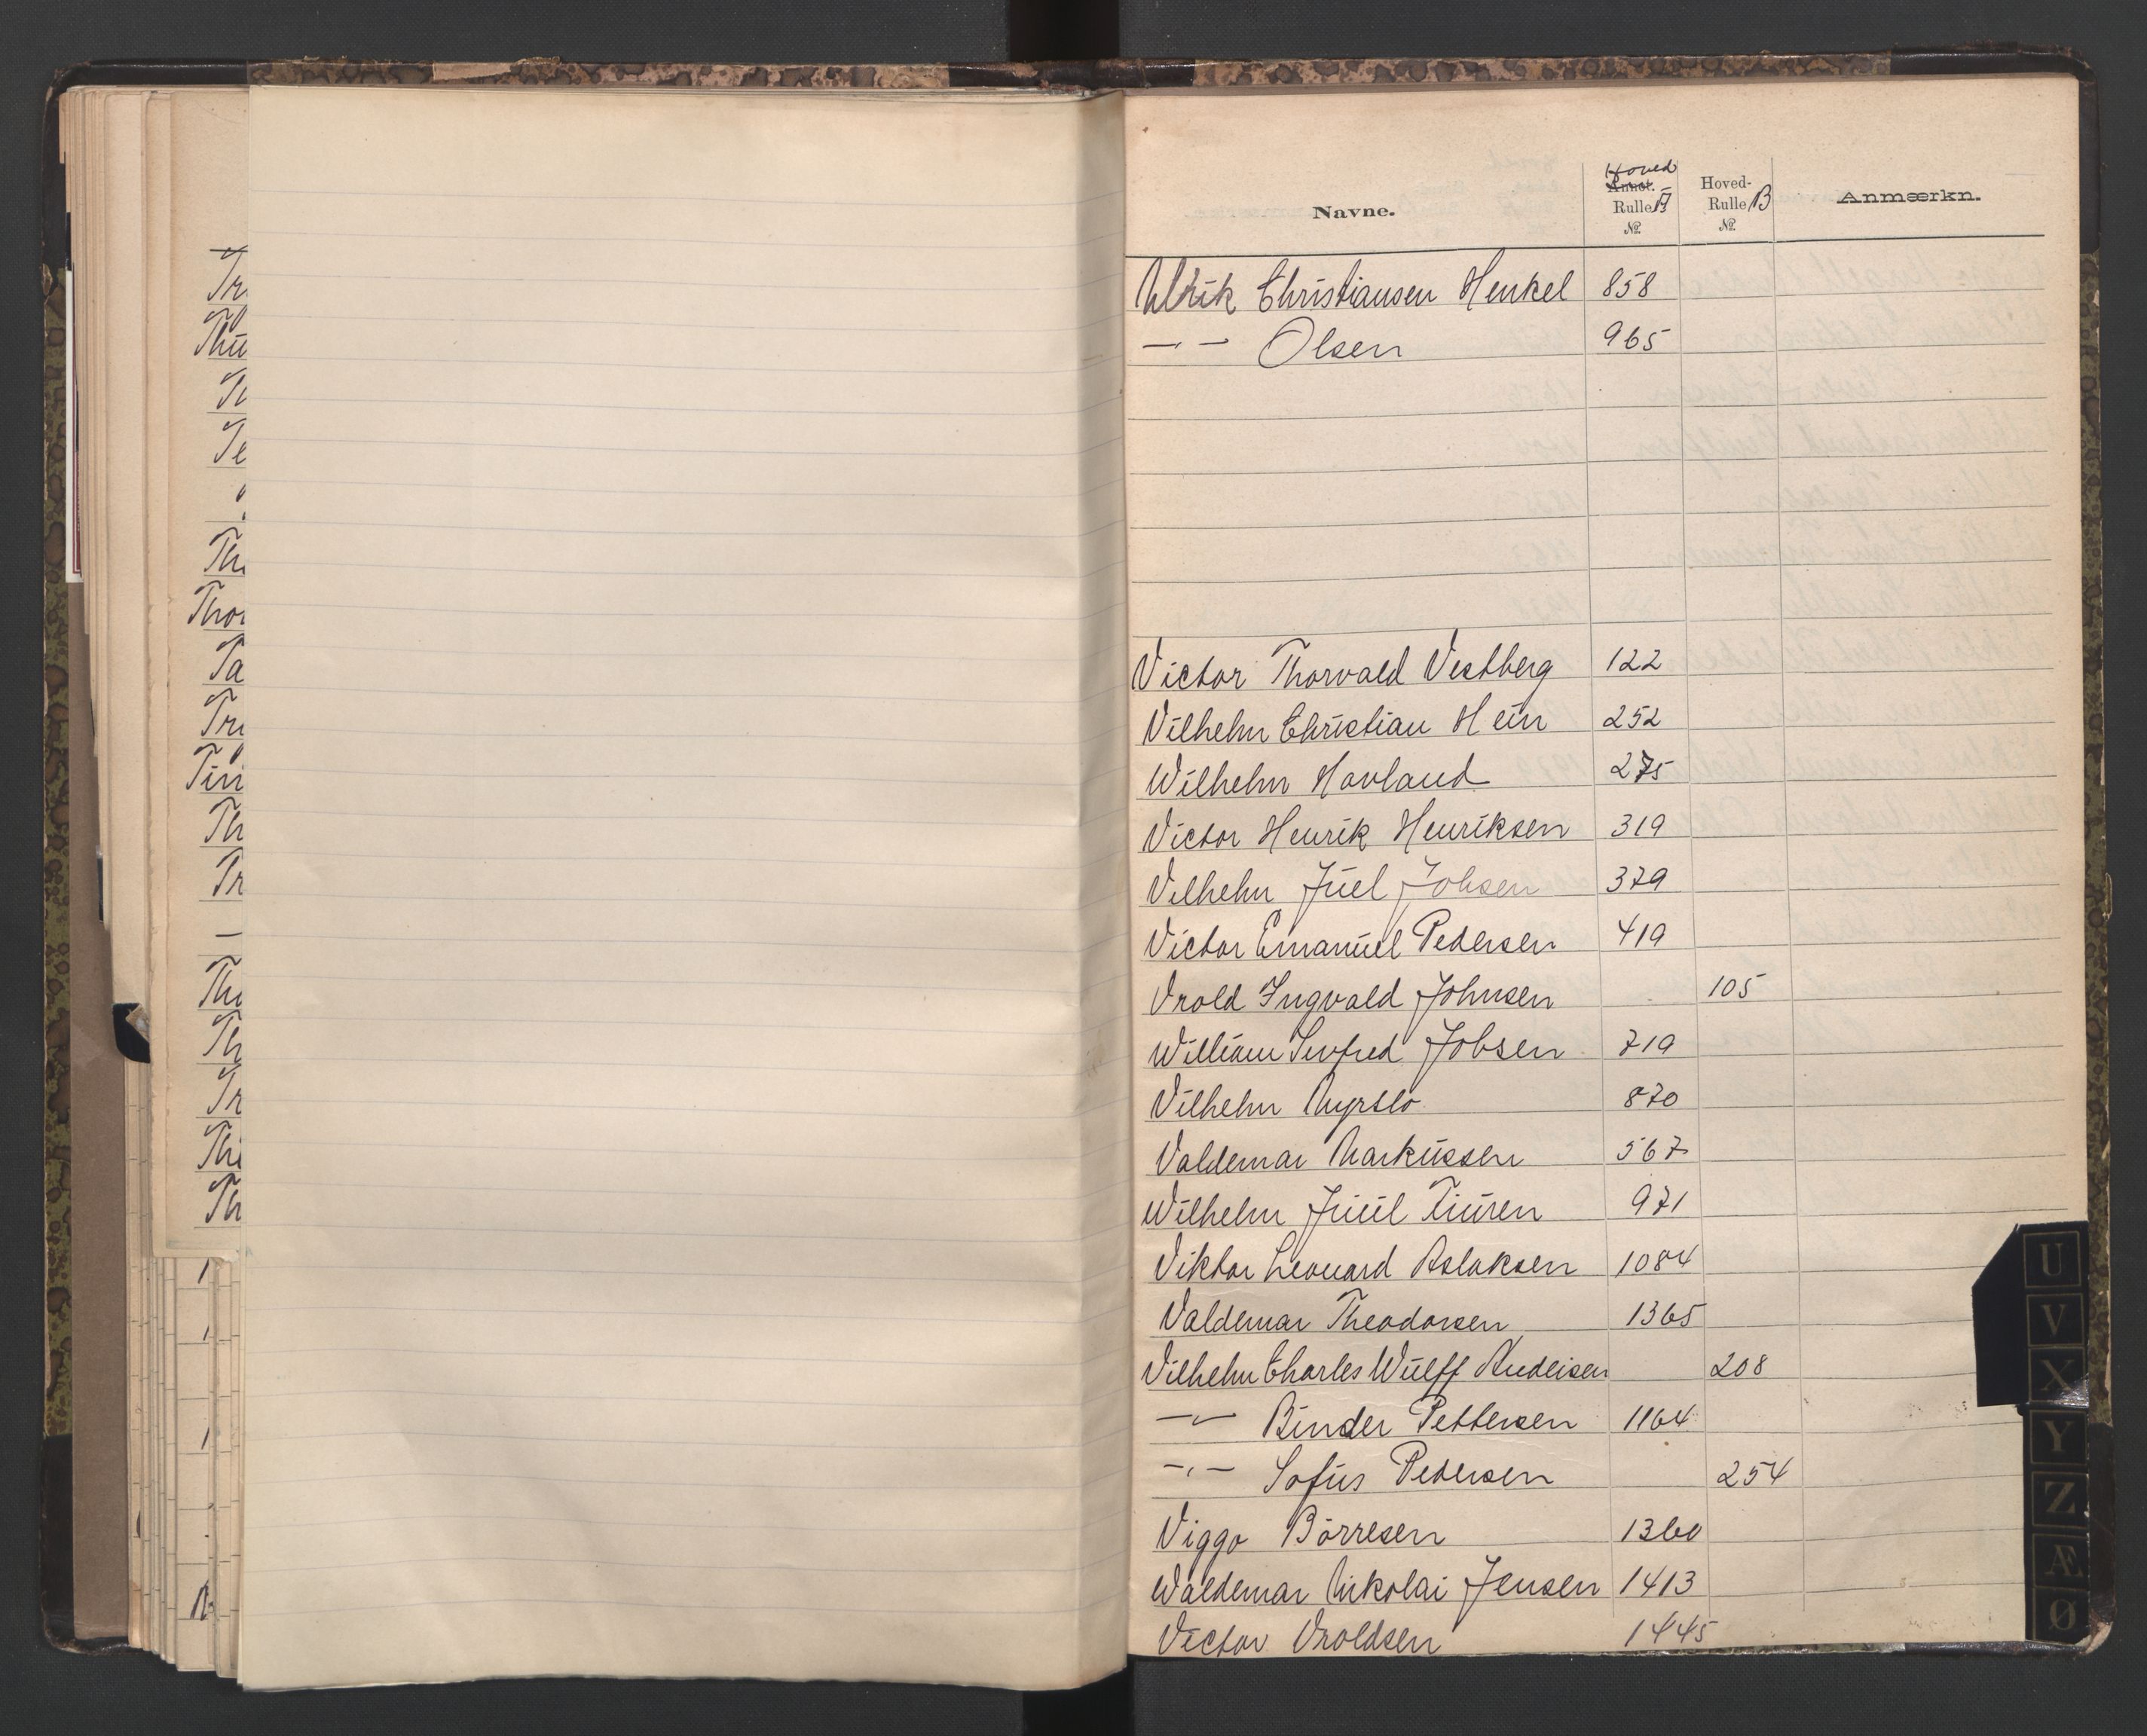 Tr
Thu
Tr
Te
Th
Thor
Ta
Tri
Tin
Th
Tr
Th
Th
Tr
Thi
Th
Navne.
Hoved
Annot. Rulle A №
Hoved-Rulle B №
Anmærkn.
Ulrik Christiansen Henkel 858
—„— Olsen 965
Victor Thorvald Vestberg 122
Vilhelm Christian Hein 252
Wilhelm Havland 275
Victor Henrik Henriksen 319
Vilhelm Juel Jobsen 379
Victor Emanuel Pedersen 419
Vrold Ingvald Johnsen 105
William Senfred Jobsen 719
Vilhelm Myrslo 870
Valdemar Markussen 567
Wilhelm Juul Tiüren 971
Viktor Leonard Aslaksen 1084
Valdemar Theodorsen 1365
Vilhelm Charles Wulff Andeisen 208
—„— Binder Pettersen 1164
—„— Sofus Pedersen 254
Viggo Börresen 1360
Waldemar Nikolai Jensen 1413
Victor Vroldsen 1445
U
V
X
Y
Z
Æ
Ø